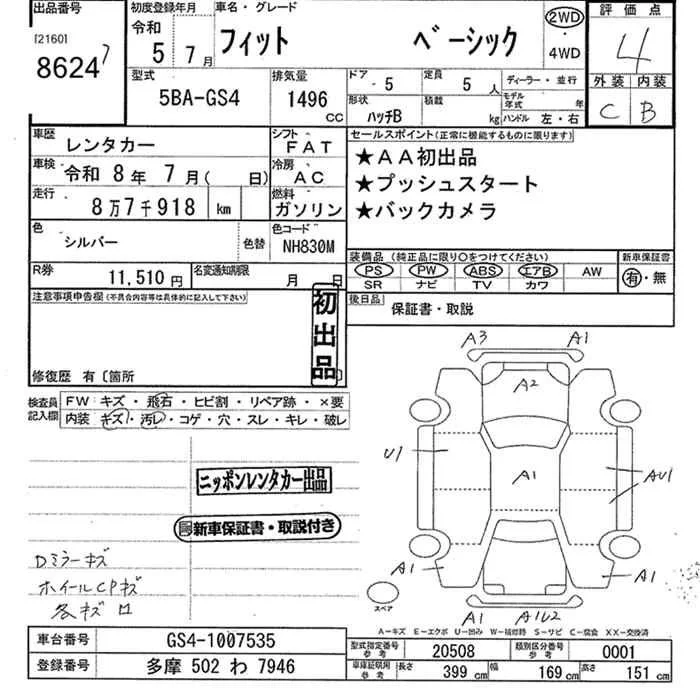 出品番号
[2160]
8624 7
初度登録年月
令和
5 年 7 月
車名・グレード
フィット ベーシック
2WD
・
4WD
評価点
4
外装 内装
C B
型式
5BA-GS4
排気量
1496 CC
ドア 5
定員 5 人
ディーラー・並行
形状 ハッチB
積載 kg
モデル年式 年
ハンドル 左・右
車歴 レンタカー
シフト FAT
車検 令和 8 年 7 月 ( 日)
冷房 AC
走行 8 万 7 千 918 km
燃料 ガソリン
色 シルバー
色替
色コード NH830M
R券 11,510 円
名変通知期限 月 日
セールスポイント(正常に機能するものに限ります)
★AA初出品
★プッシュスタート
★バックカメラ
装備品 (純正品に限り〇をつけてください)
新車保証書
PS PW ABS エアB AW
SR ナビ TV カワ
有・無
後日品 保証書・取説
注意事項申告欄 (不具合内容等は具体的に記入して下さい)
初出品
修復歴 有 〔箇所 〕
検査員記入欄
FW キズ ・ 飛石 ・ ヒビ割 ・ リペア跡 ・ ×要
内装 キズ・汚レ・コゲ・穴・スレ・キレ・破レ
ニッポンレンタカー出品
新車保証書・取説付き
Dミラーキズ
ホイールCPキズ
各キズ
A3 A1
A2
U1
A1
AU1
A1
A1
A1 A1U2
スペア
A-キズ E-エクボ U-凹み W-補修跡 S-サビ C-腐食 XX-交換済
車台番号 GS4-1007535
登録番号 多摩 502 わ 7946
型式指定番号 参考 20508
類別区分番号 参考 0001
車庫証明用 参考
長さ 399 cm
幅 169 cm
高さ 151 cm